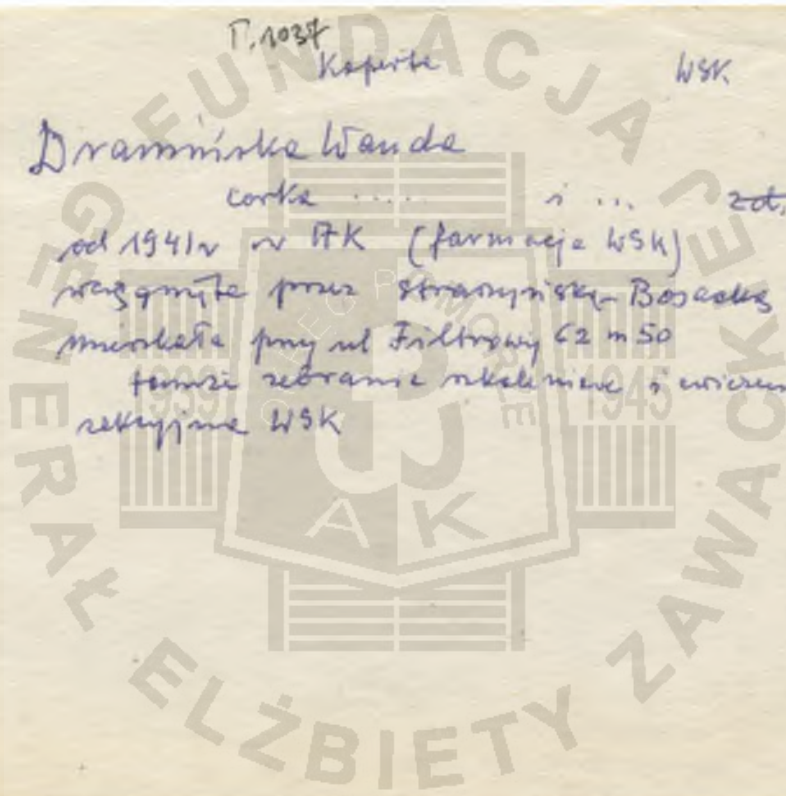 T. 1037
Koperta WSK
Dramińska Wanda
corka ..... i ... zd.
od 1941 r w AK (farmacja WSK)
wciągnięta przez Straszyńską-Bosacką
mieszkała przy ul Filtrowej 62 m 50
tamże zebrania szkoleniowe i
sekcyjne WSK
FUNDACJA GENERAŁ ELŻBIETY ZAWACKIEJ
OKRĘG POMORZE
1939 1945
AK